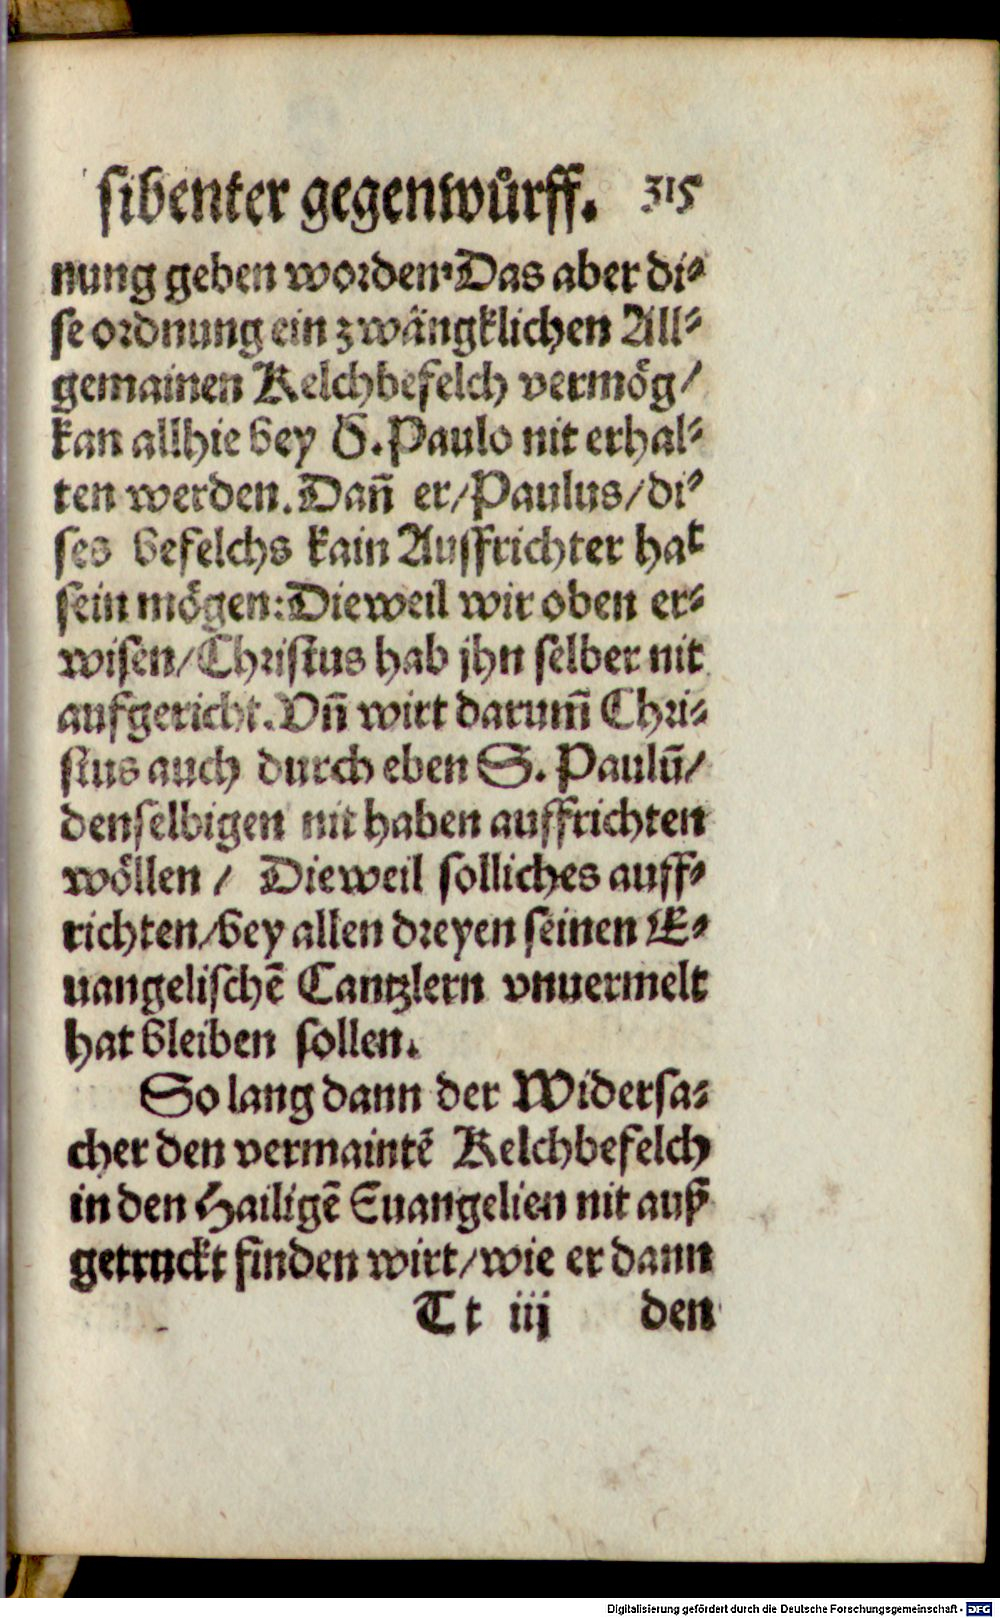 sibenter gegenwůrff. 315
nung geben worden. Das aber di⸗
se ordnung ein zwängklichen All⸗
gemainen Kelchbefelch vermög/
kan allhie bey S. Paulo nit erhal⸗
ten werden. Dañ er/Paulus/di⸗
ses befelchs kain Auffrichter hat
sein mögen: Dieweil wir oben er⸗
wisen/Christus hab jhn selber nit
aufgericht. Vñ wirt darum̃ Chri⸗
stus auch durch eben S. Paulũ/
denselbigen nit haben auffrichten
wöllen / Dieweil solliches auff⸗
richten/bey allen dreyen seinen E⸗
uangelischẽ Cantzlern vnuermelt
hat bleiben sollen.
So lang dann der Widersa⸗
cher den vermaintẽ Kelchbefelch
in den Hailigẽ Euangelien nit auß
getruckt finden wirt/wie er dann
Tt iij den
Digitalisierung gefördert durch die Deutsche Forschungsgemeinschaft - DFG